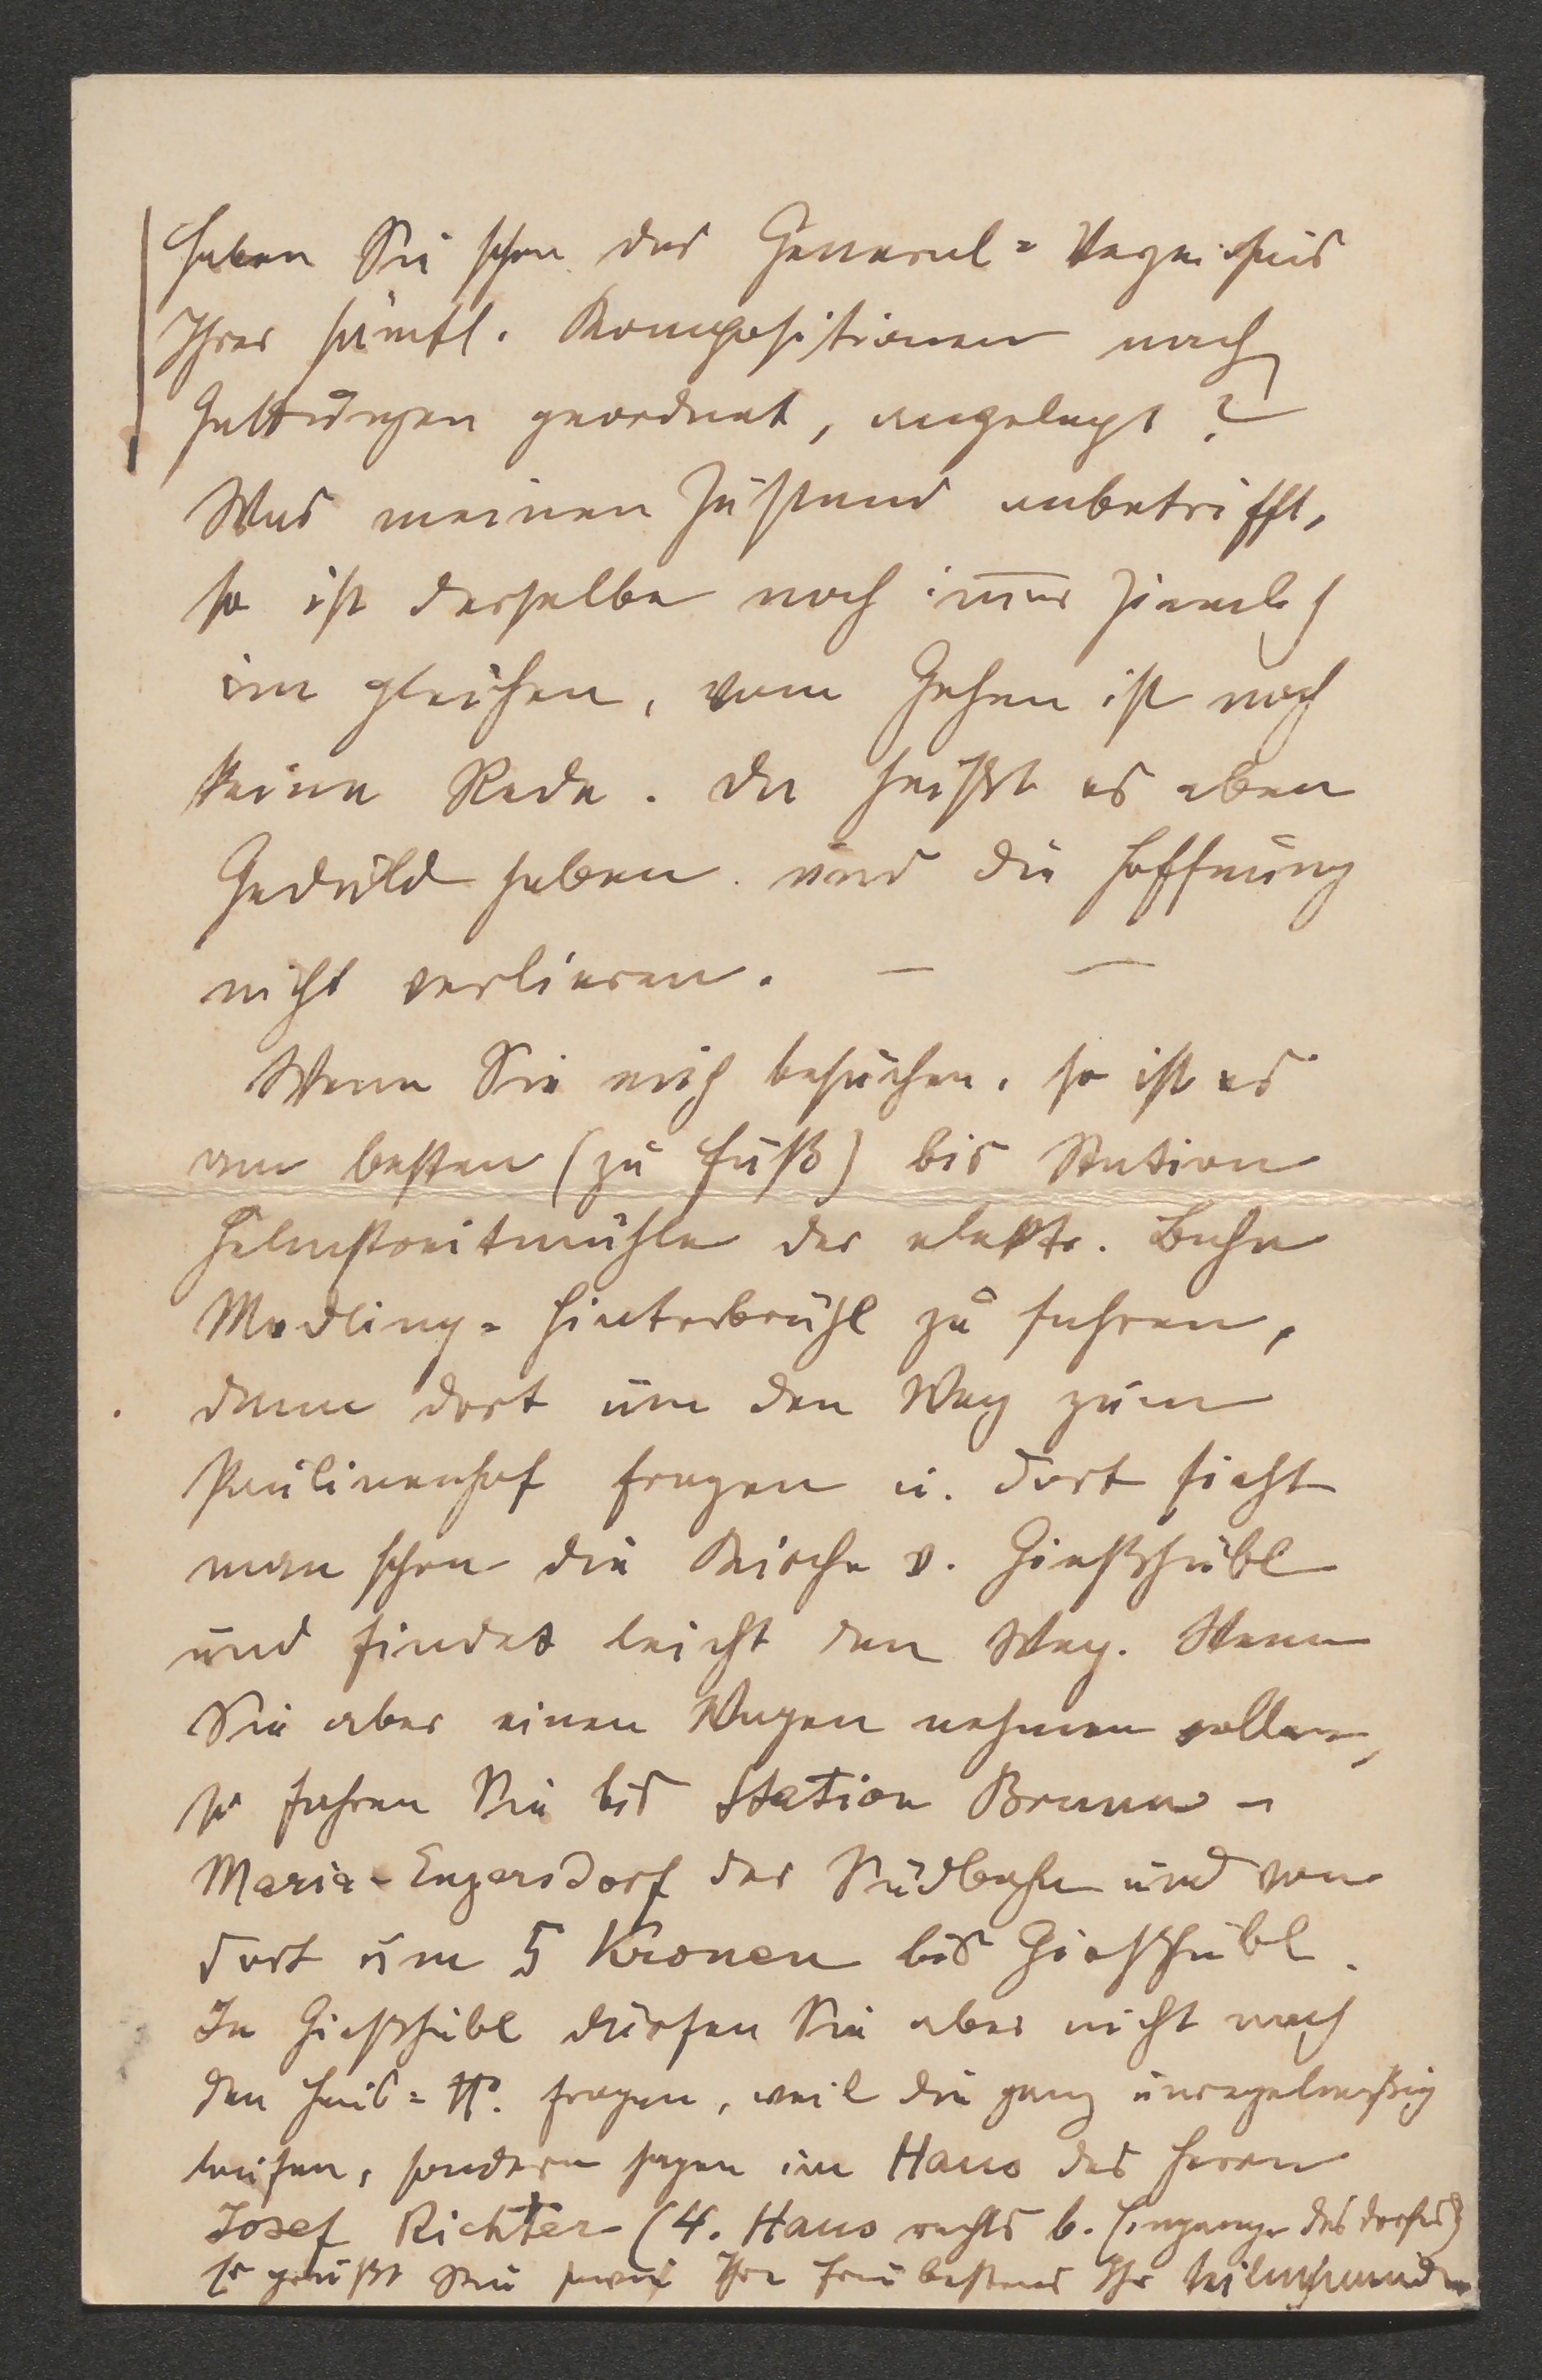 Haben Sie schon das General-Verzeichnis
Ihrer sämtl. Kompositionen nach
Gattungen geordnet, angelegt?
Was meinen Zustand anbetrifft,
so ist derselbe noch immer ziemlich
im gleichen, vom Gehen ist noch
keine Rede. Da heißt es eben
Geduld haben und die Hoffnung
nicht verlieren. — —
Wenn Sie mich besuchen, so ist es
am besten (zu Fuß) bis Station
Helmstreitmühle der elektr. Bahn
Mödling-Hinterbrühl zu fahren,
dann dort um den Weg zum
Paulinenhof fragen u. dort sieht
man schon die Kirche v. Gießhübl
und findet leicht den Weg. Wenn
Sie aber einen Wagen nehmen wollen,
so fahren Sie bis Station Brunn-
Maria-Enzersdorf der Südbahn und von
dort um 5 Kronen bis Gießhübl.
In Gießhübl dürfen Sie aber nicht nach
den Haus-No. fragen, weil die ganz unregelmäßig
laufen, sondern sagen im Haus des Herrn
Josef Richter (4. Haus rechts b. Eingange des Dorfes)
Es grüßt Sie sowie Ihre Frau bestens Ihr